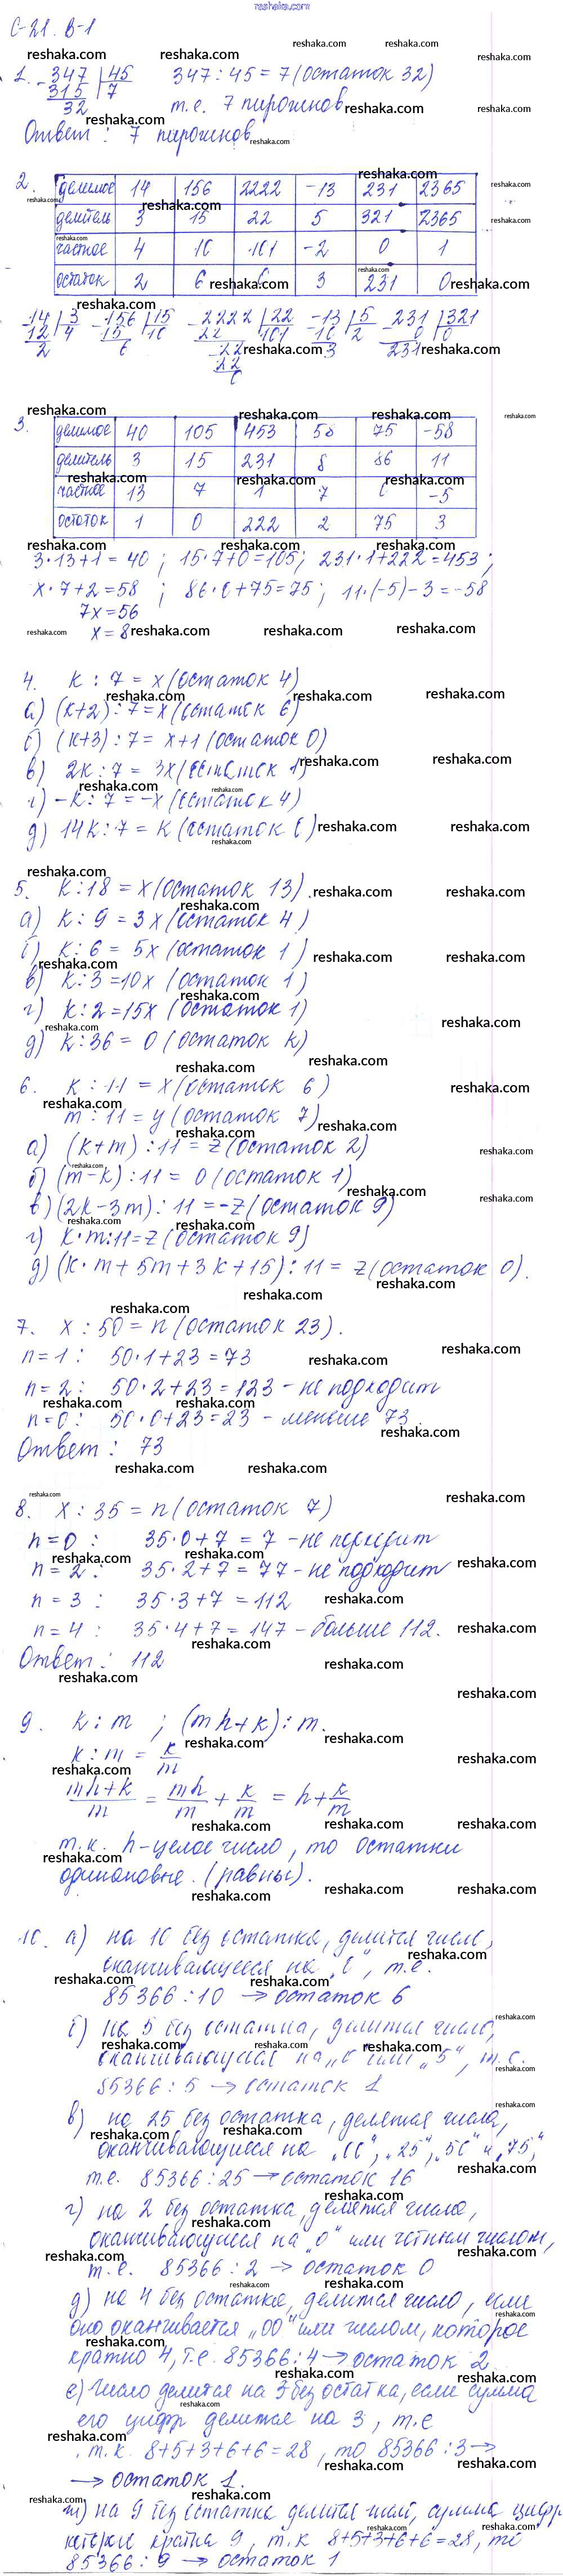 reshaka.com
С-21. В-1
1. 347 | 45      347 : 45 = 7 (остаток 32)
315 | 7
32      т.е. 7 пирожков
Ответ: 7 пирожков
2. делимое 14 156 2222 -13 231 2365
делитель 3 15 22 5 321 2365
частное 4 10 101 -2 0 1
остаток 2 6 0 3 231 0
14 | 3   156 | 15   2222 | 22   -13 | 5   231 | 321
12 | 4   15 | 10   22 | 101   10 | 2   0 | 0
2   6   22   3   231
22
0
3. делимое 40 105 453 58 75 -58
делитель 3 15 231 8 86 11
частное 13 7 1 7 0 -5
остаток 1 0 222 2 75 3
3·13+1=40 ; 15·7+0=105; 231·1+222=453;
x·7+2=58 ; 86·0+75=75; 11·(-5)-3=-58
7x=56
x=8
4. k : 7 = x (остаток 4)
а) (k+2) : 7 = x (остаток 6)
б) (k+3) : 7 = x+1 (остаток 0)
в) 2k : 7 = 3x (остаток 1)
г) -k : 7 = -x (остаток 4)
д) 14k : 7 = k (остаток 0)
5. k : 18 = x (остаток 13).
а) k : 9 = 3x (остаток 4)
б) k : 6 = 5x (остаток 1)
в) k : 3 = 10x (остаток 1)
г) k : 2 = 15x (остаток 1)
д) k : 36 = 0 (остаток k)
6. k : 11 = x (остаток 6)
m : 11 = y (остаток 7)
а) (k+m) : 11 = z (остаток 2)
б) (m-k) : 11 = 0 (остаток 1)
в) (2k-3m) : 11 = -z (остаток 9)
г) k·m : 11 = z (остаток 9)
д) (k·m+5m+3k+15) : 11 = z (остаток 0).
7. x : 50 = n (остаток 23).
n=1 : 50·1+23=73
n=2 : 50·2+23=123 - не подходит
n=0 : 50·0+23=23 - меньше 73.
Ответ : 73
8. x : 35 = n (остаток 7)
n=0 : 35·0+7=7 - не
n=2 : 35·2+7=77 - не подходит
n=3 : 35·3+7=112
n=4 : 35·4+7=147 - больше 112.
Ответ : 112
9. k : m ; (mn+k) : m.
k : m = k/m
(mn+k)/m = mn/m + k/m = n + k/m
т.к. n - целое число, то остатки
одинаковые. (равны).
10. а) на 10 без остатка, делится число,
оканчивающееся на „0“, т.е.
85366 : 10 → остаток 6
б) на 5 без остатка, делится число,
оканчивающееся на „0“ или „5“, т.е.
85366 : 5 → остаток 1
в) на 25 без остатка, делятся числа,
оканчивающиеся на „00“, „25“, „50“ и „75“,
т.е. 85366 : 25 → остаток 16
г) на 2 без остатка, делятся числа,
оканчивающиеся на „0“ или четным числом,
т.е. 85366 : 2 → остаток 0
д) на 4 без остатка, делится число, если
оно оканчивается „00“ или числом, которое
кратно 4, т.е. 85366 : 4 → остаток 2
е) Число делится на 3 без остатка, если сумма
его цифр делится на 3, т.е
т.к. 8+5+3+6+6=28, то 85366 : 3 →
→ остаток 1.
ж) на 9 без остатка делится число, сумма цифр
которые кратна 9, т.к 8+5+3+6+6=28, то
85366 : 9 → остаток 1